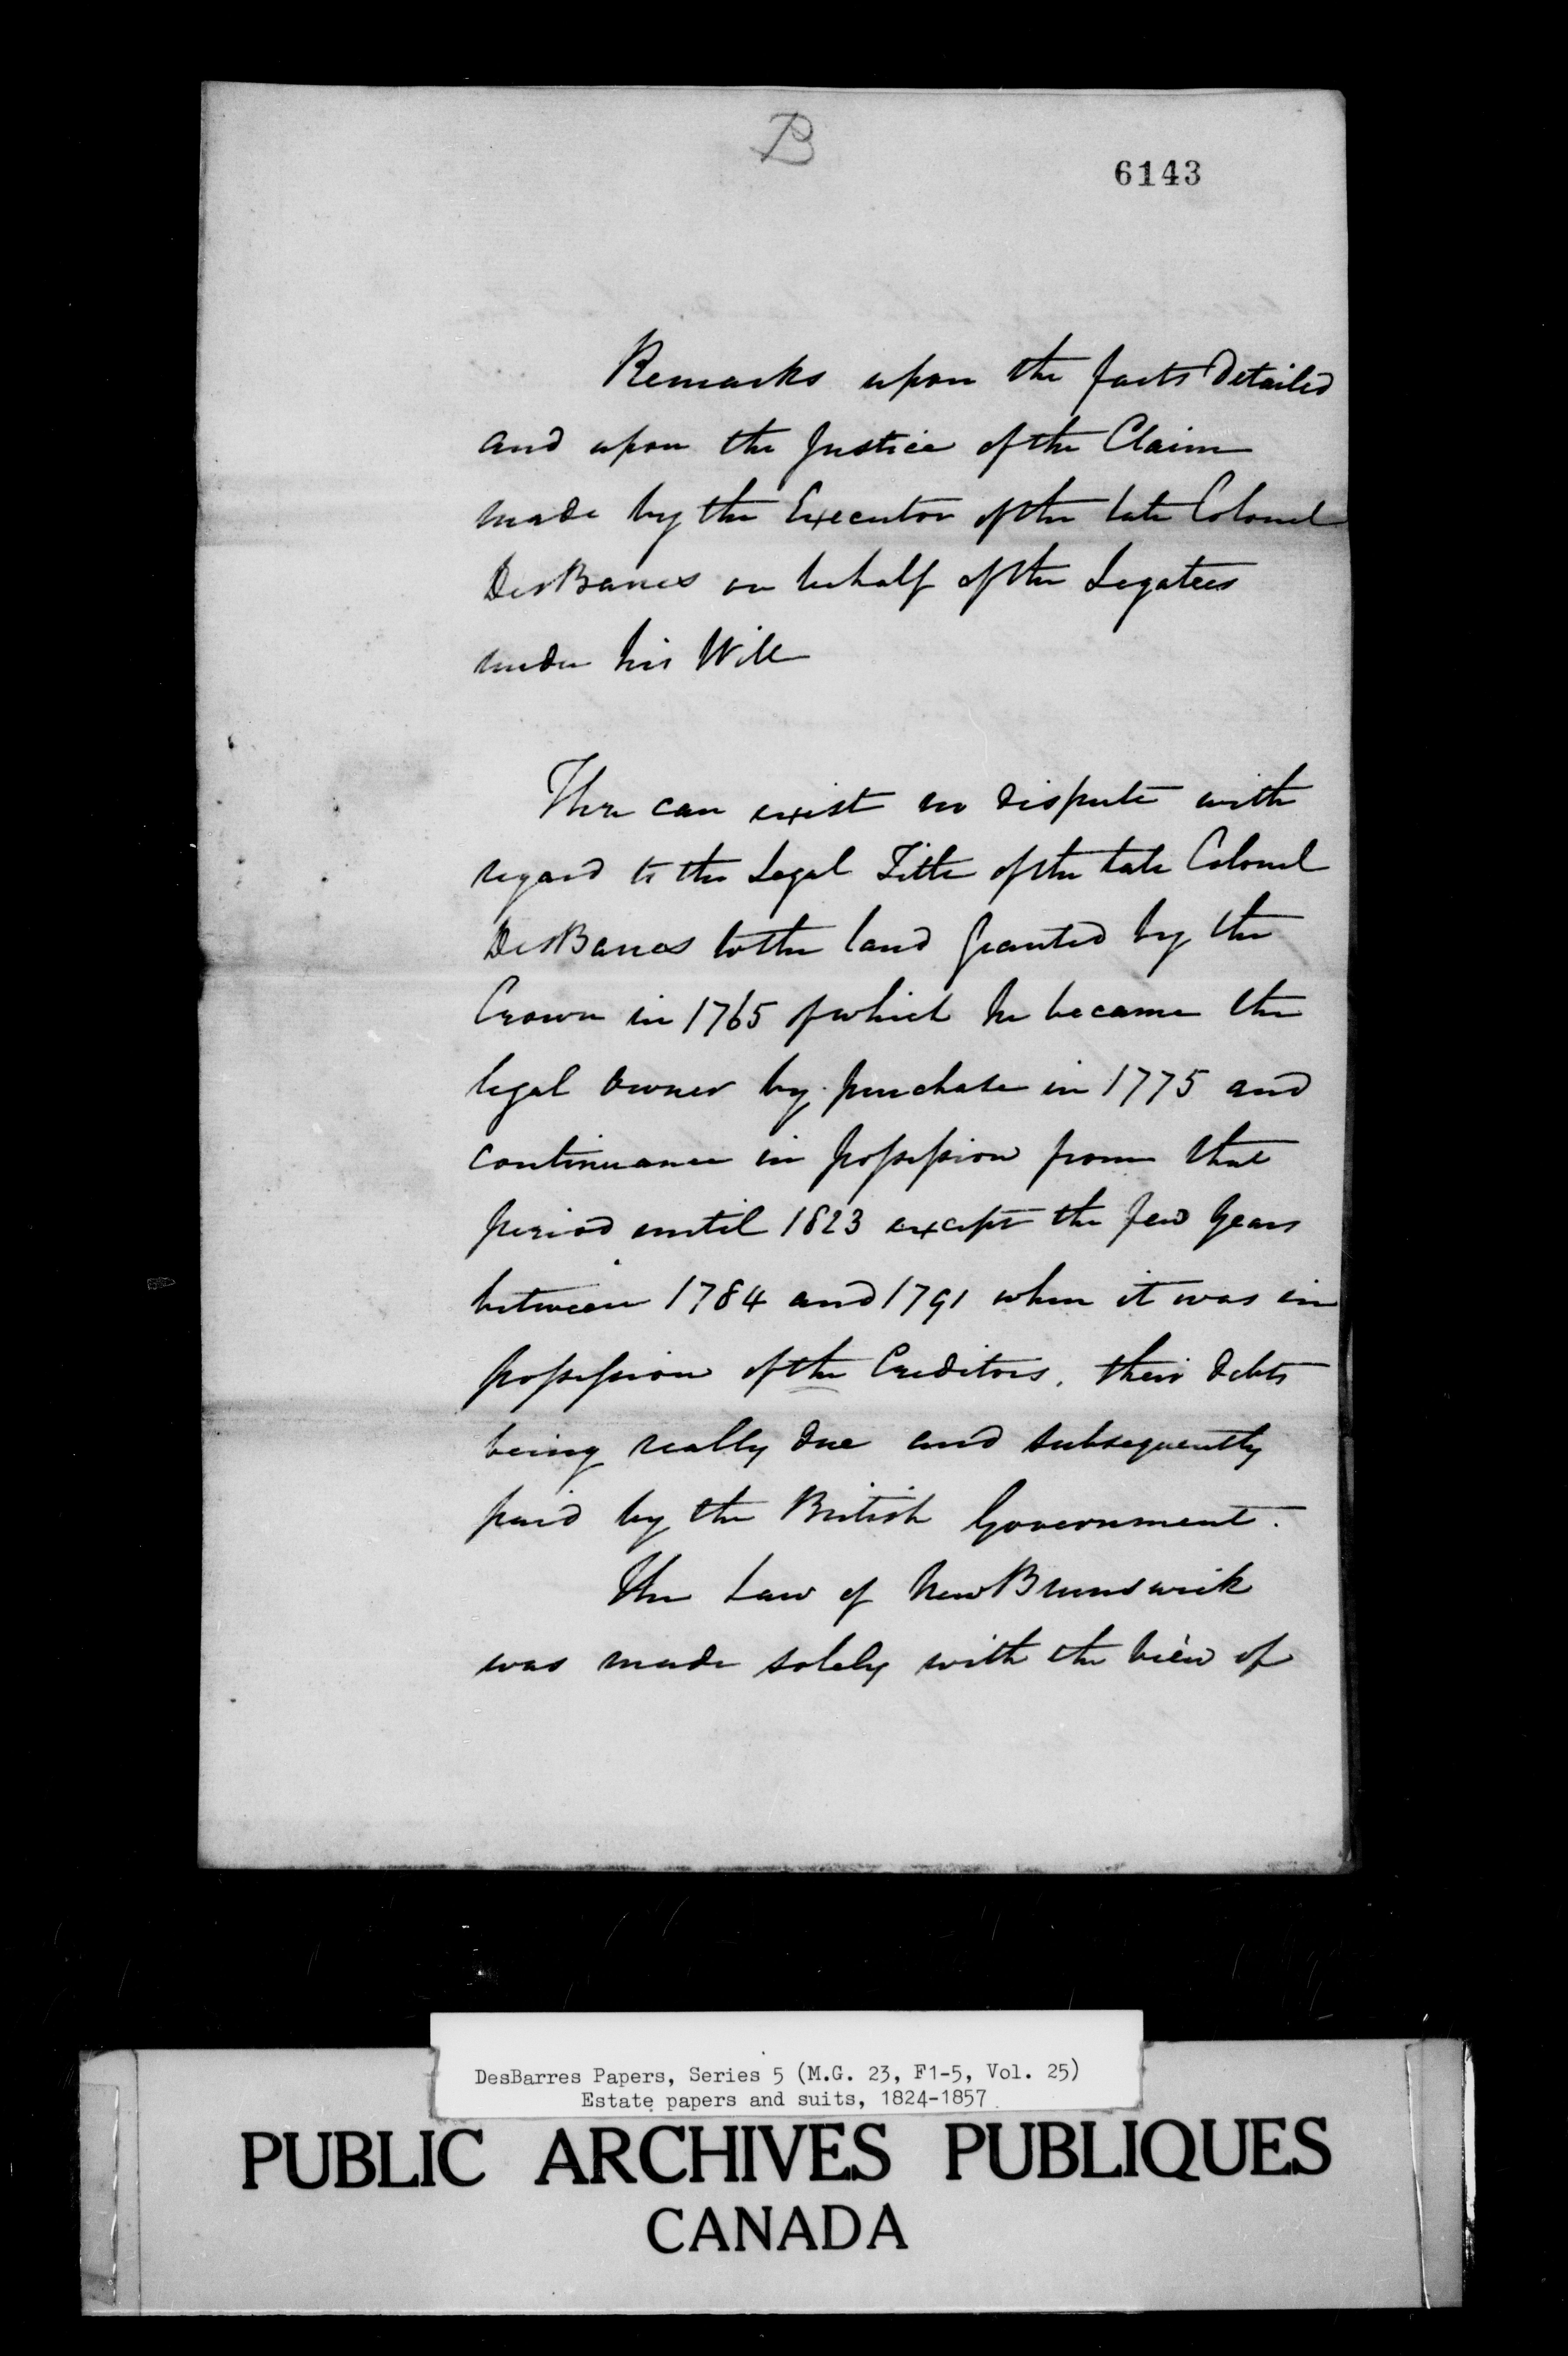 B
6143
Remarks upon the facts Detailed
and upon the Justice of the Claim
made by the Executor of the late Colonel
DesBarres on behalf of the Legatees
under his Will
There can exist no dispute with
regard to the Legal Title of the late Colonel
DesBarres to the land Granted by the
Crown in 1765 of which he became the
legal owner by purchase in 1775 and
continuance in possession from that
period until 1823 except the few years
between 1784 and 1791 when it was in
possession of the Creditors, their debts
being really due and subsequently
paid by the British Government.
The Law of New Brunswick
was made solely with the view of
DesBarres Papers, Series 5 (M.G. 23, F1-5, Vol. 25)
Estate papers and suits, 1824-1857
PUBLIC ARCHIVES PUBLIQUES
CANADA